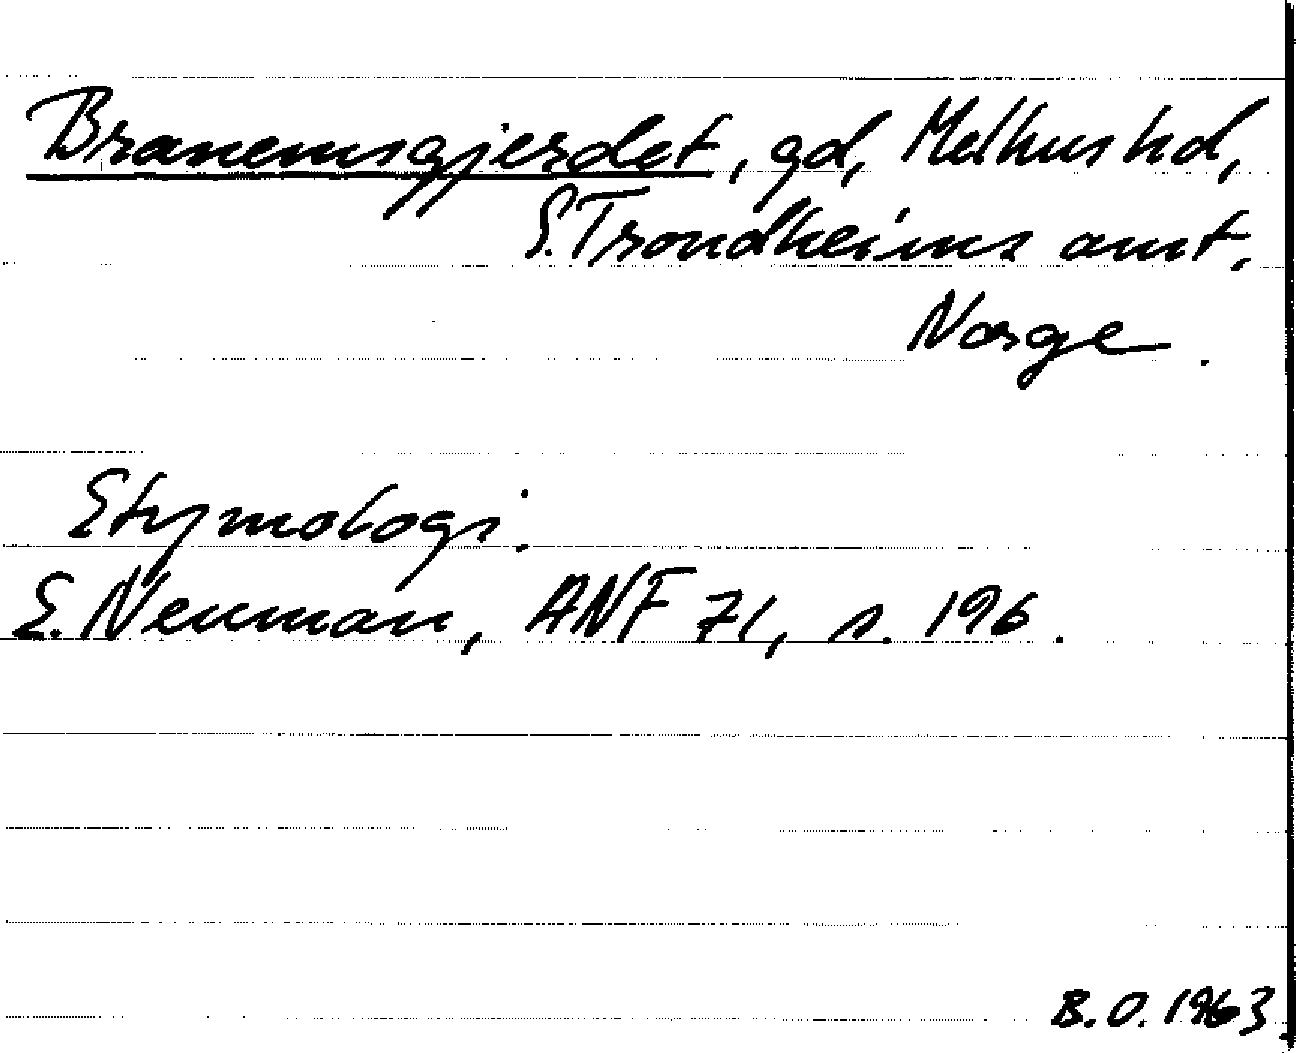 Branemsgjerdet, gd, Melhus hd,
S. Trondheims amt,
Norge.
Etymologi:
E. Neuman, ANF 71, s. 196.
B.O. 1963